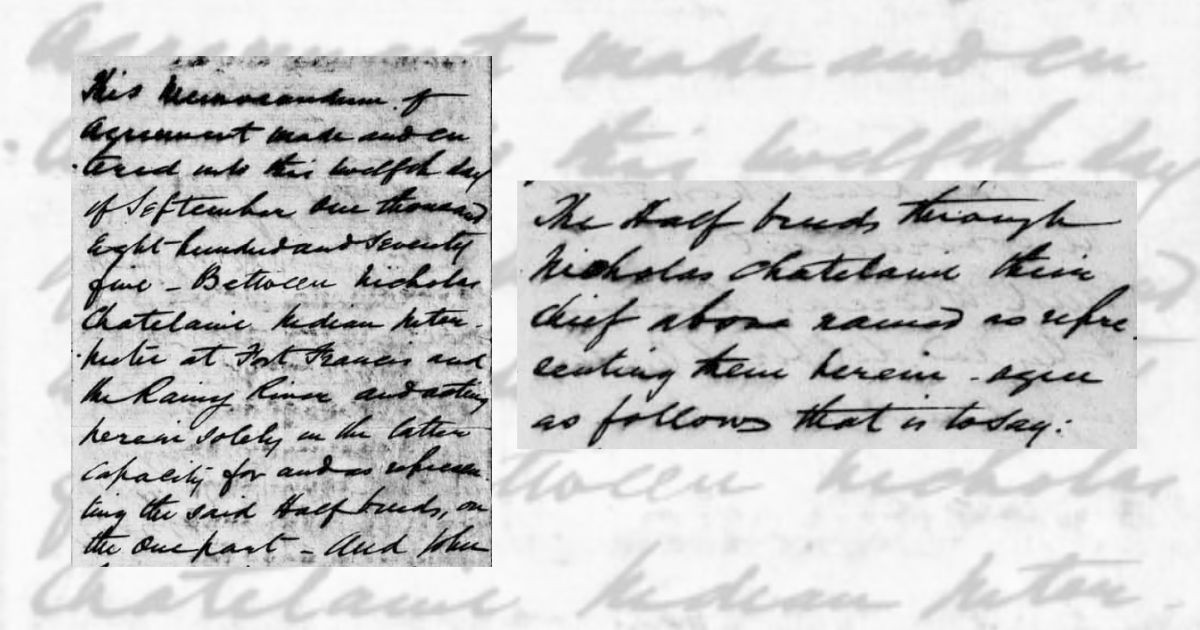 This Memorandum of
Agreement made and en
tered into this twelfth day
of September one thousand
Eight hundred and seventy
five - Between Nicholas
Chatelaine Indian inter-
preter at Fort Francis and
the Rainy River and acting
herein solely in the latter
capacity for and as represen
ting the said Half breeds, on
the one part - And John
The Half breeds through
Nicholas Chatelaine their
chief above named as repre
senting them herein - agree
as follows that is to say: